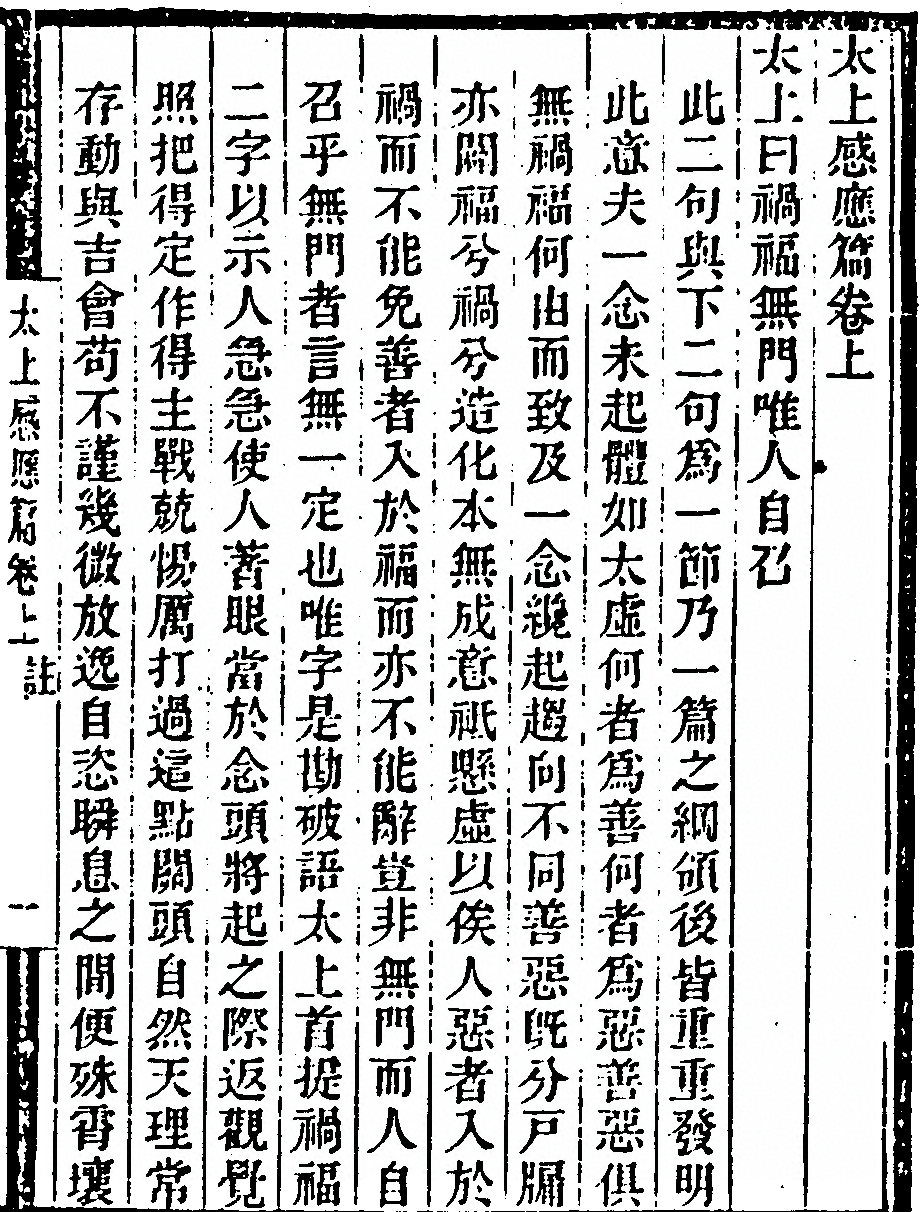 太上感應篇卷上
太上曰禍福無門唯人自召
此二句與下二句爲一節乃一篇之綱領後皆重重發明
此意夫一念未起體如太虛何者爲善何者爲惡善惡俱
無禍福何由而致及一念纔起趨向不同善惡旣分戸牖
亦闢福兮禍兮造化本無成意祇懸虛以俟人惡者入於
禍而不能免善者入於福而亦不能辭豈非無門而人自
召乎無門者言無一定也唯字是勘破語太上首提禍福
二字以示人急急使人著眼當於念頭將起之際返觀覺
照把得定作得主戰兢惕厲打過這點關頭自然天理常
存動與吉會苟不謹幾微放逸自恣瞬息之間便殊霄壤
太上感應篇卷上 註 一